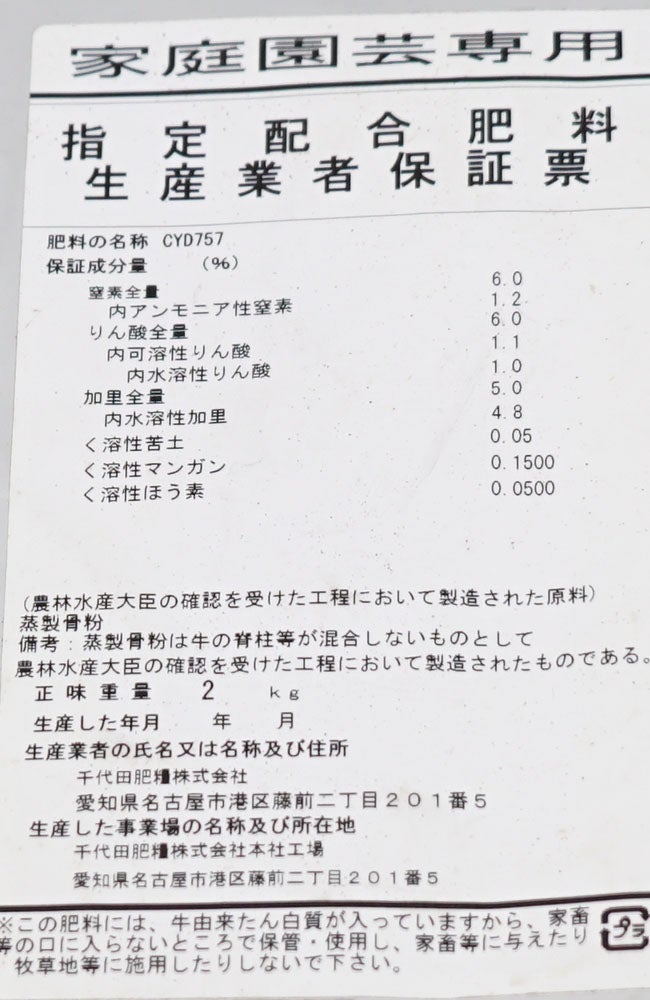 家庭園芸専用
指定配合肥料
生産業者保証票
肥料の名称 CYD757
保証成分量 (%)
窒素全量 6.0
内アンモニア性窒素 1.2
りん酸全量 6.0
内可溶性りん酸 1.1
内水溶性りん酸 1.0
加里全量 5.0
内水溶性加里 4.8
く溶性苦土 0.05
く溶性マンガン 0.1500
く溶性ほう素 0.0500
(農林水産大臣の確認を受けた工程において製造された原料)
蒸製骨粉
備考:蒸製骨粉は牛の脊柱等が混合しないものとして
農林水産大臣の確認を受けた工程において製造されたものである。
正味重量 2 kg
生産した年月 年 月
生産業者の氏名又は名称及び住所
千代田肥糧株式会社
愛知県名古屋市港区藤前二丁目201番5
生産した事業場の名称及び所在地
千代田肥糧株式会社本社工場
愛知県名古屋市港区藤前二丁目201番5
※この肥料には、牛由来たん白質が入っていますから、家畜
等の口に入らないところで保管・使用し、家畜等に与えたり
牧草地等に施用したりしないで下さい。
プラ